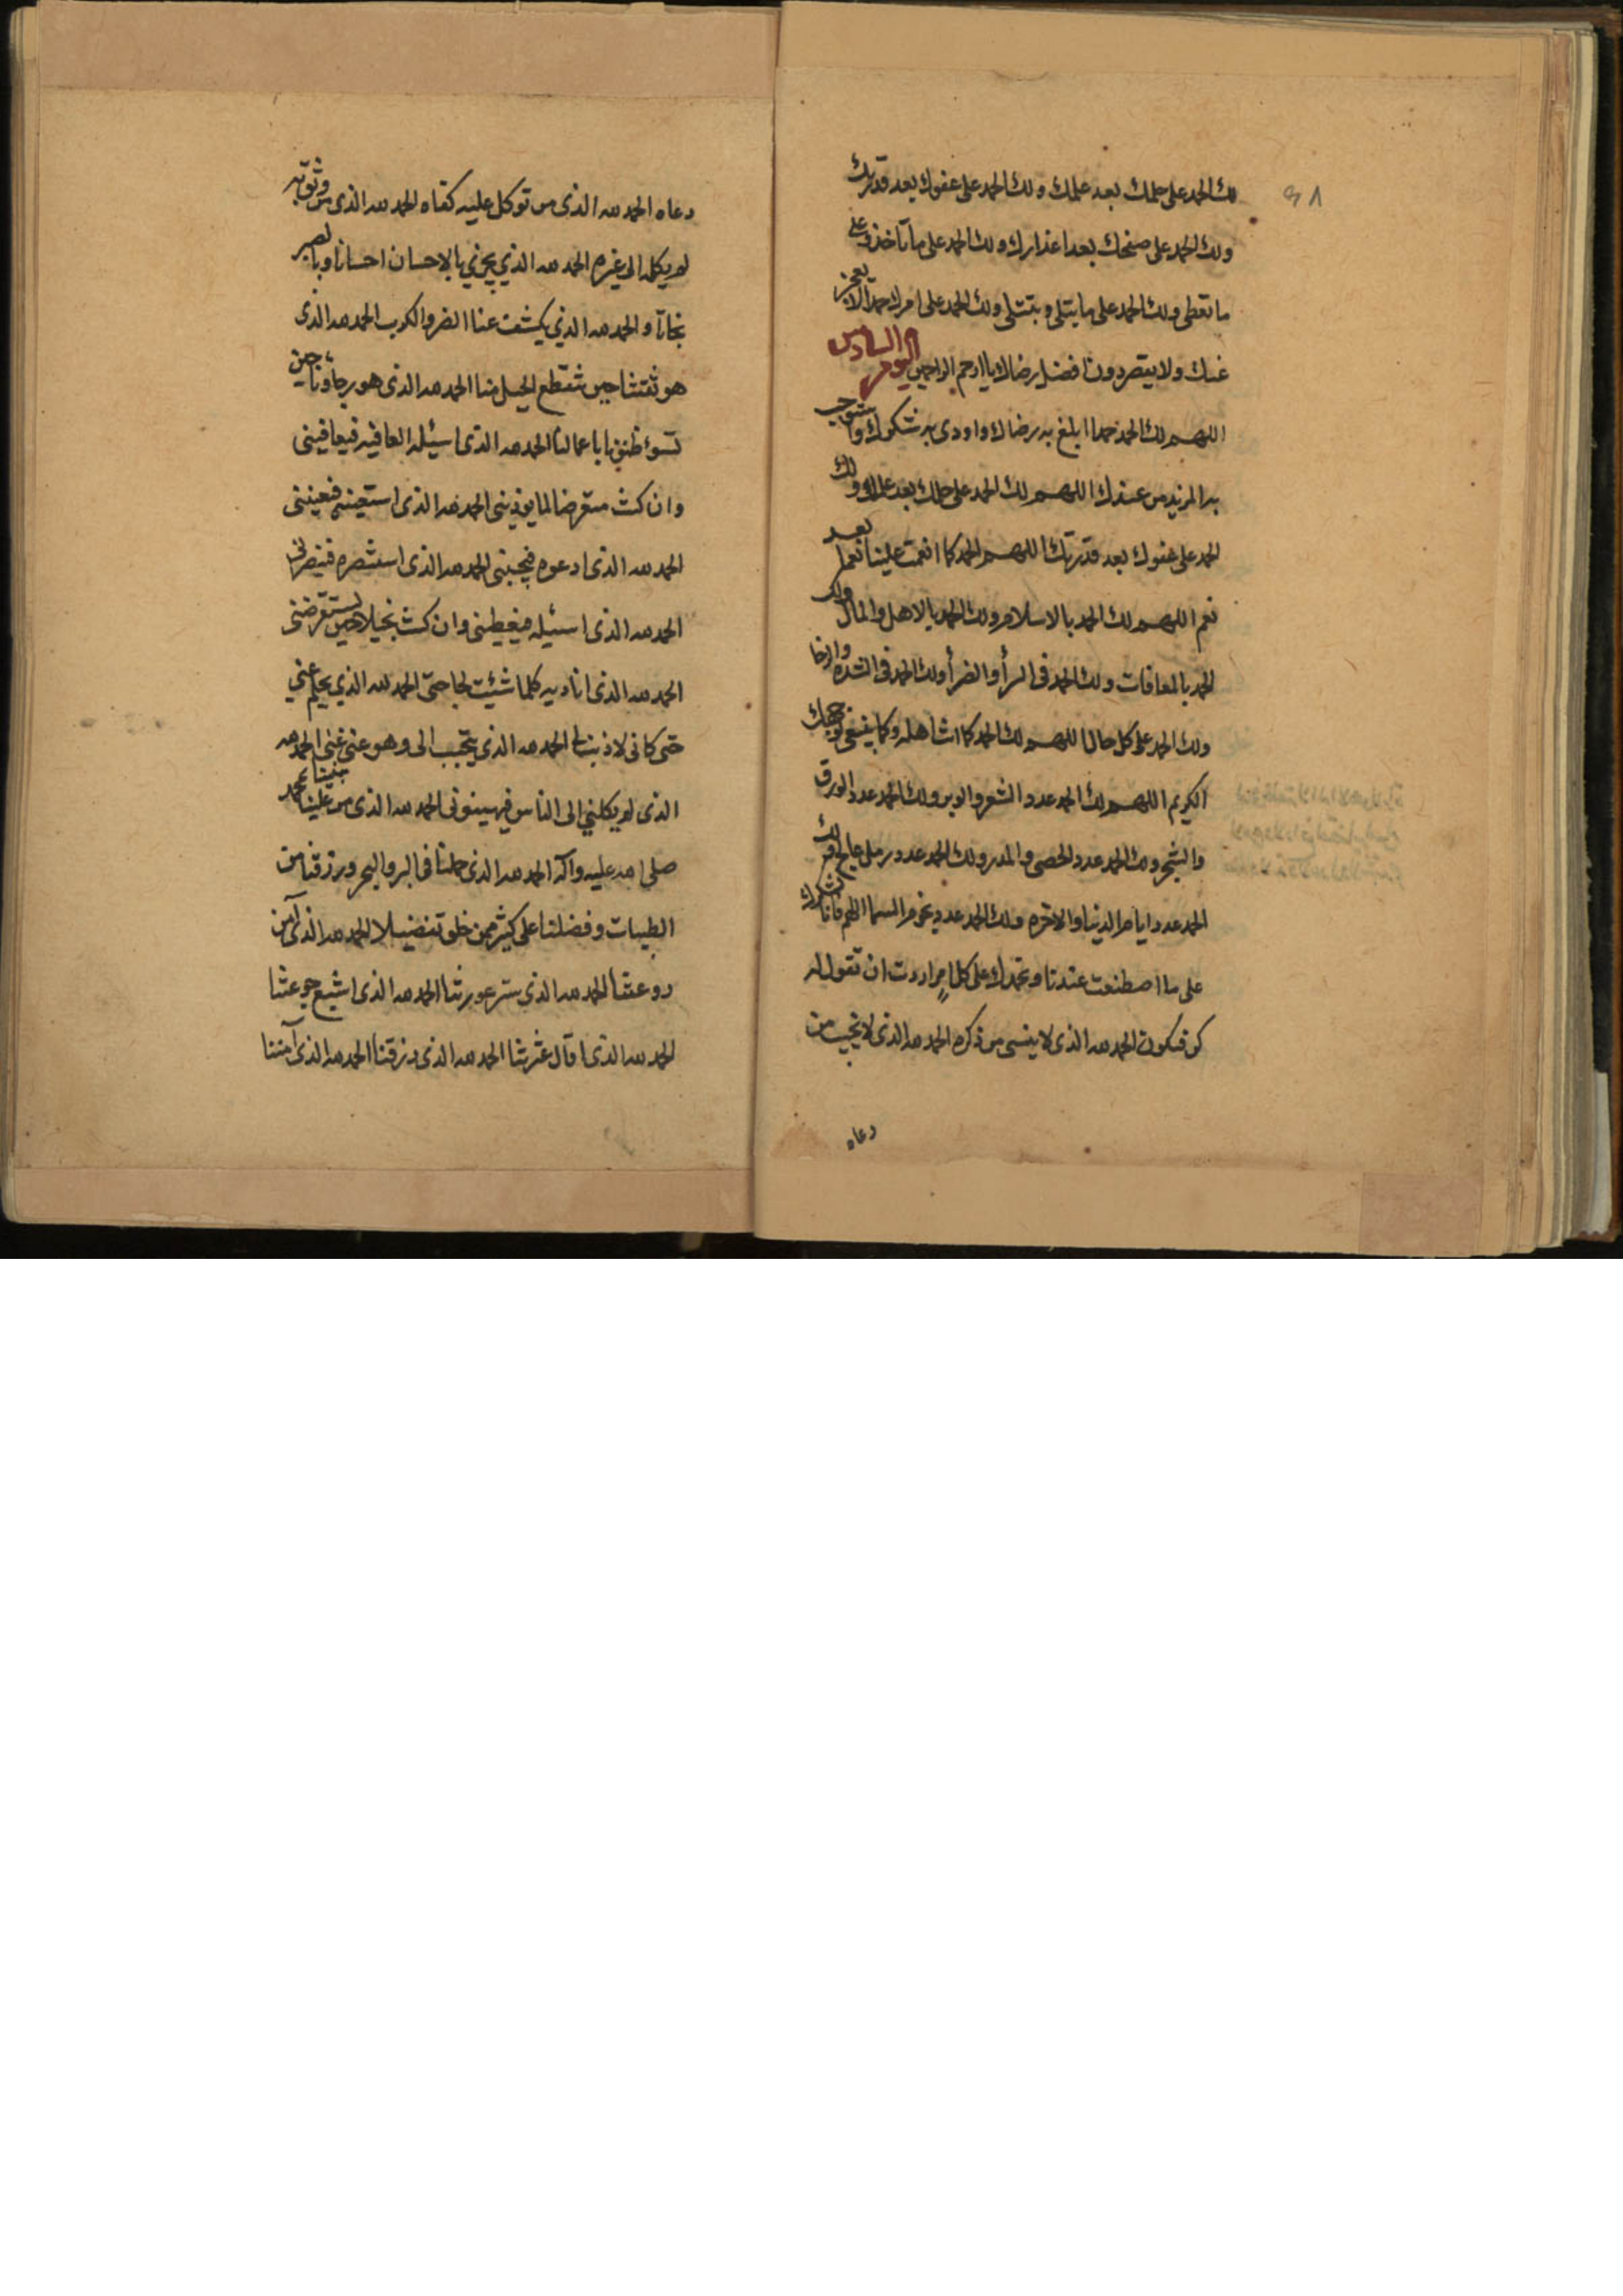 لك الحمد على حلمك بعد علمك ولك الحمد على عفوك بعد قدرتك
ولك الحمد على صفحك بعد اعذارك ولك الحمد على ما تاخذ وعلى
ما تعطى ولك الحمد على ما يبتلى وتبتلى ولك الحمد على امرك حمدا لا يعجز
عنك ولا يقصر دون افضل رضاك يا ارحم الراحمين اليوم السادس
اللهم لك الحمد حمدا ابلغ به رضاك واودى به شكرك واستوجب
به المزيد من عندك اللهم لك الحمد على حلمك بعد علمك ولك
الحمد على عفوك بعد قدرتك اللهم الحمد كما انعمت علينا نعما بعد
نعم اللهم لك الحمد بالاسلام ولك الحمد بالاهل والمال ولك
الحمد بالمعافات ولك الحمد فى السرأ والضرأ ولك الحمد فى الشدة والرخا
ولك الحمد على كل حال اللهم لك الحمد كما انت اهله وكما ينبغى لوجهك
الكريم اللهم لك الحمد عدد الشعر والوبر ولك الحمد عدد الورق
والشجر ولك الحمد عدد الحصى والمدر ولك الحمد عدد رمل عالج ولك
الحمد عدد ايام الدنيا والاخرة ولك الحمد عدد نجوم السما اللهم فانا نشكرك
على ما اصطنعت عندنا ونحمدك على كل امر اردت ان تقول له
كن فيكون الحمد لله الذى لا ينسى من ذكره الحمد لله الذى لا يخيب من
دعاه
٩٨
دعاه الحمد لله الذى من توكل عليه كفاه الحمد لله الذى من وثق به
لم يكله الى غيره الحمد لله الذي يجزي بالاحسان احسانا وبالصبر
نجاتا والحمد لله الذي يكشف عنا الضر والكرب الحمد لله الذى
هو ثقتنا حين تنقطع الحيل منا الحمد لله الذى هو رجاؤنا حين
تسوء ظنوننا باعمالنا الحمد لله الذى اسئله العافيه فيعافينى
وان كنت متعرضا لما يوذينى الحمد لله الذى استعينه فيعيننى
الحمد لله الذى ادعوه فيجيبنى الحمد لله الذى استنصره فينصرنى
الحمد لله الذى اسئله فيعطينى وان كنت بخيلا حين يستقرضنى
الحمد لله الذى اناديه كلما شئت لحاجتى الحمد لله الذي يحلم عني
حتى كانى لا ذنب لى الحمد لله الذي يتحبب الى وهو عنى غنى الحمد لله
الذى لم يكلني الى الناس فيهينونى الحمد لله الذى من علينا بنبينا محمد
صلى الله عليه وآله الحمد لله الذى حملنا فى البر والبحر ورزقنا من
الطيبات وفضلنا على كثير ممن خلق تفضيلا الحمد لله الذى آمن
روعتنا الحمد لله الذى ستر عورتنا الحمد لله الذى اشبع جوعتنا
الحمد لله الذى اقال عثرتنا الحمد لله الذى رزقنا الحمد لله الذى آمننا